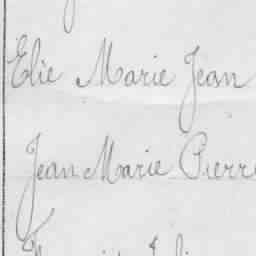 Elie Marie Jean
Jean Marie Pierre